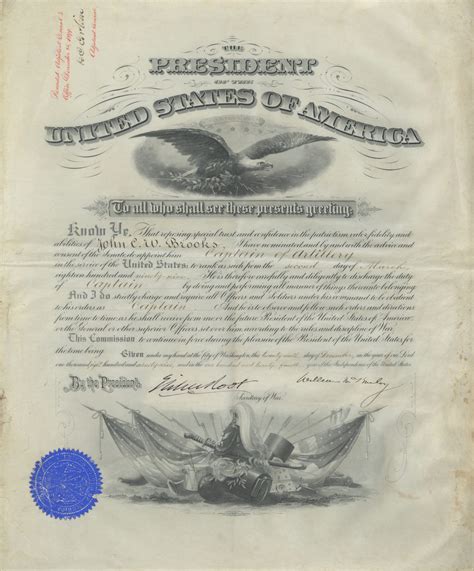 Recorded, Adjutant General's
Office, December 21, 1899
Adjutant General.
THE
PRESIDENT
OF THE
UNITED STATES OF AMERICA
To all who shall see these presents greeting:
Know Ye, That reposing special trust and confidence in the patriotism, valor, fidelity and
abilities of John C. W. Brooks, I have nominated and by and with the advice and
consent of the Senate do appoint him Captain of Artillery
in the service of the United States: to rank as such from the second day of March
eighteen hundred and ninety-nine. He is therefore carefully and diligently to discharge the
duty of Captain by doing and performing all manner of things thereunto belonging.
And I do strictly charge and require all Officers and Soldiers under his command to be obedient
to his orders as Captain. And he is to observe and follow such orders and directions
from time to time as he shall receive from me or the future President of the United States of America,
or the General or other superior Officers set over him, according to the rules and discipline of War.
This Commission to continue in force during the pleasure of the President of the United States for
the time being.
Given under my hand at the city of Washington, this day of December, in the year of our Lord
one thousand eight hundred and ninety-nine, and in the one hundred and twenty-fourth year of the Independence of the United States.
By the President:
Elihu Root
William McKinley
Secretary of War.